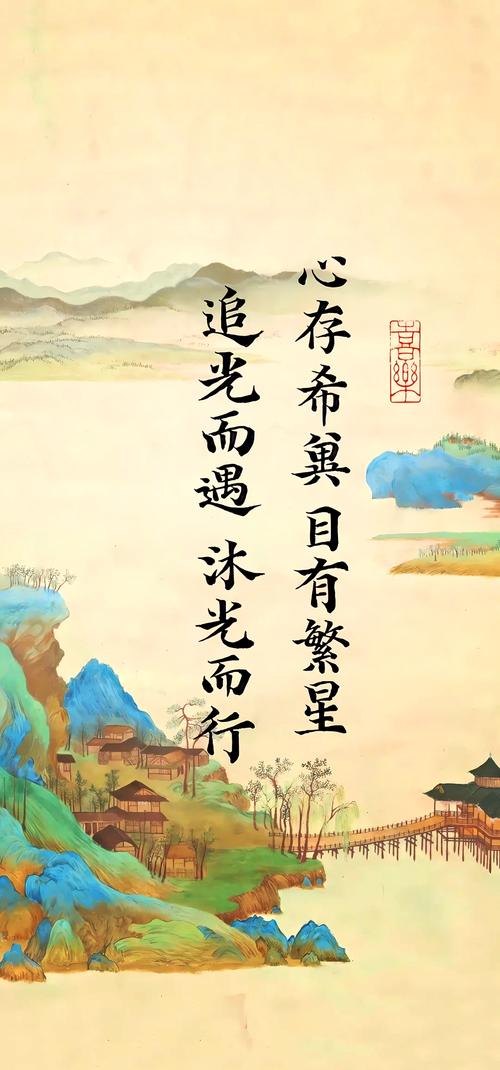 心存希冀 目有繁星
追光而遇 沐光而行
喜樂